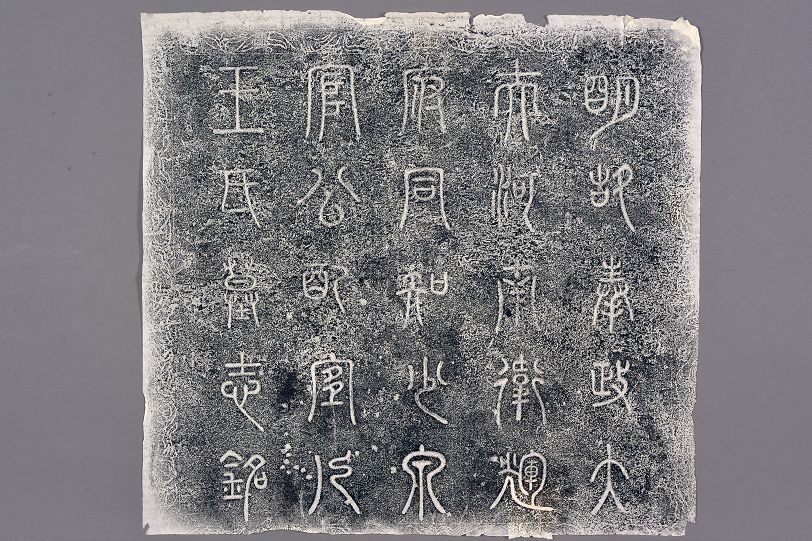 明故奉政大
夫河南衛輝
府同知少泉
公配室
王氏墓志銘